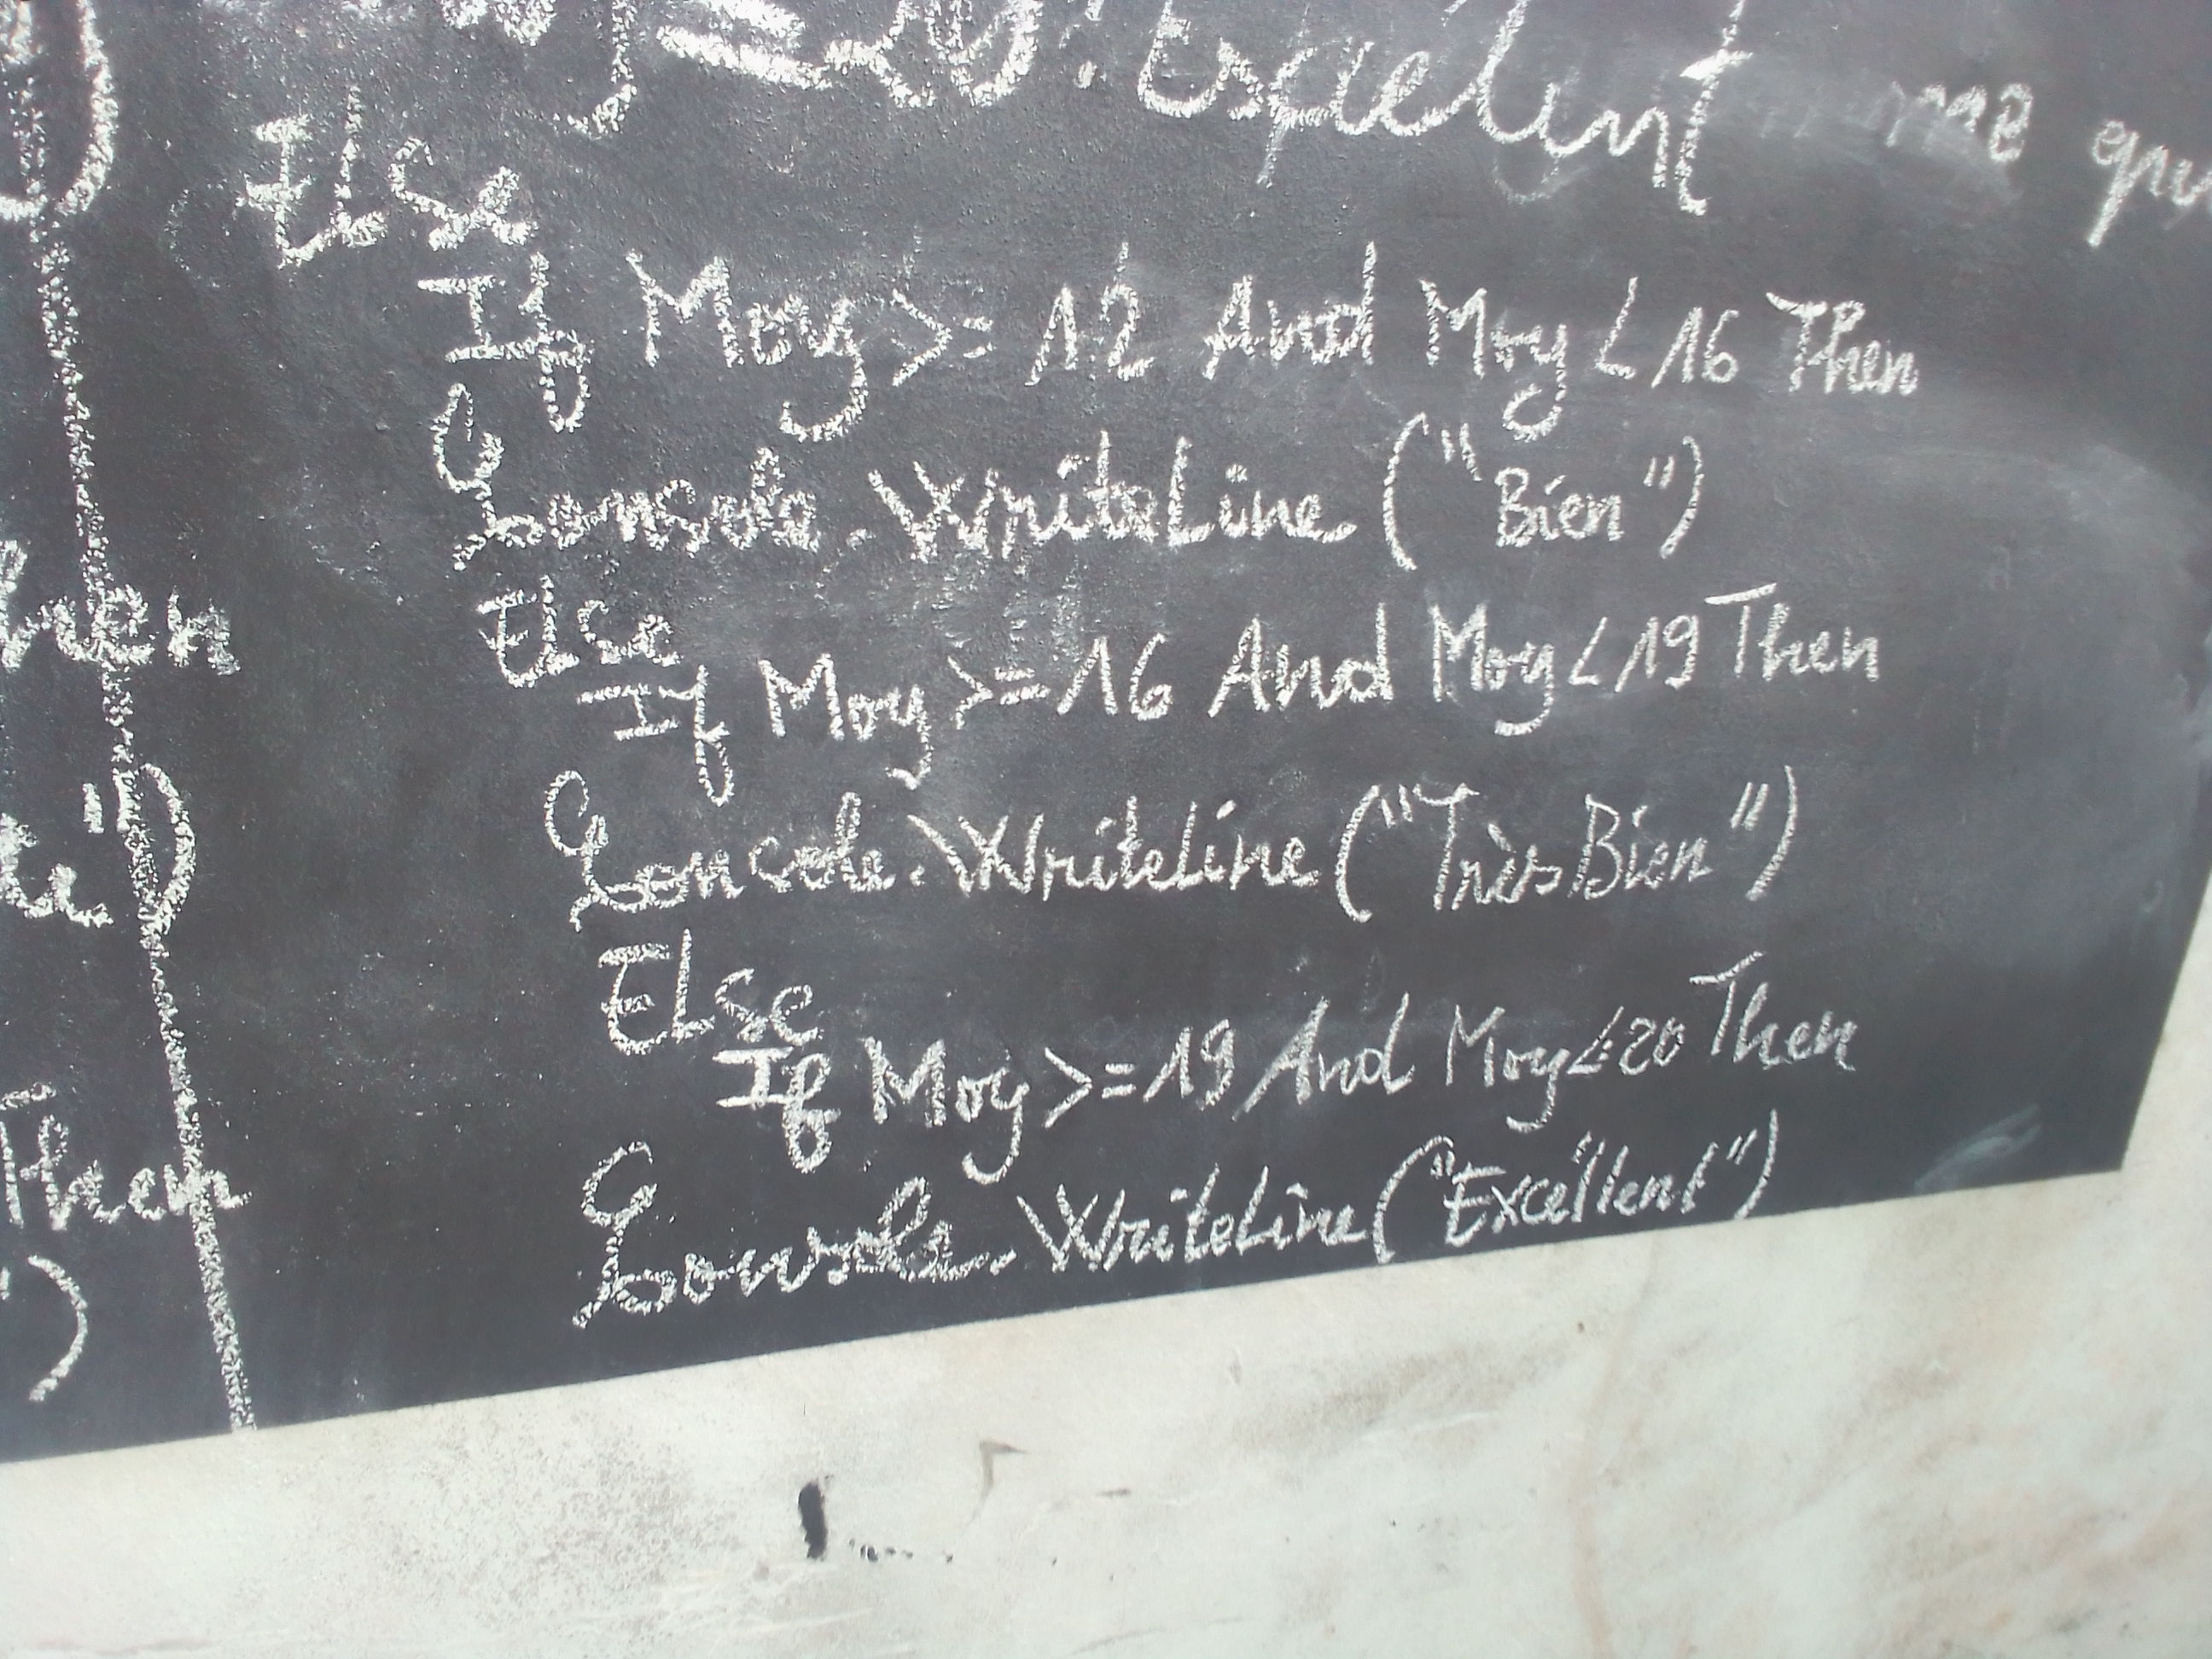 = 20 : Excellent
ELSe
If Moy >= 12 And Moy < 16 Then
Console.WriteLine ("Bien")
Else
If Moy >= 16 And Moy < 19 Then
Concole.Writeline ("Très Bien")
ELSe
If Moy >= 19 And Moy <= 20 Then
Console.WriteLine ("Excellent")
hen
te")
Then
")